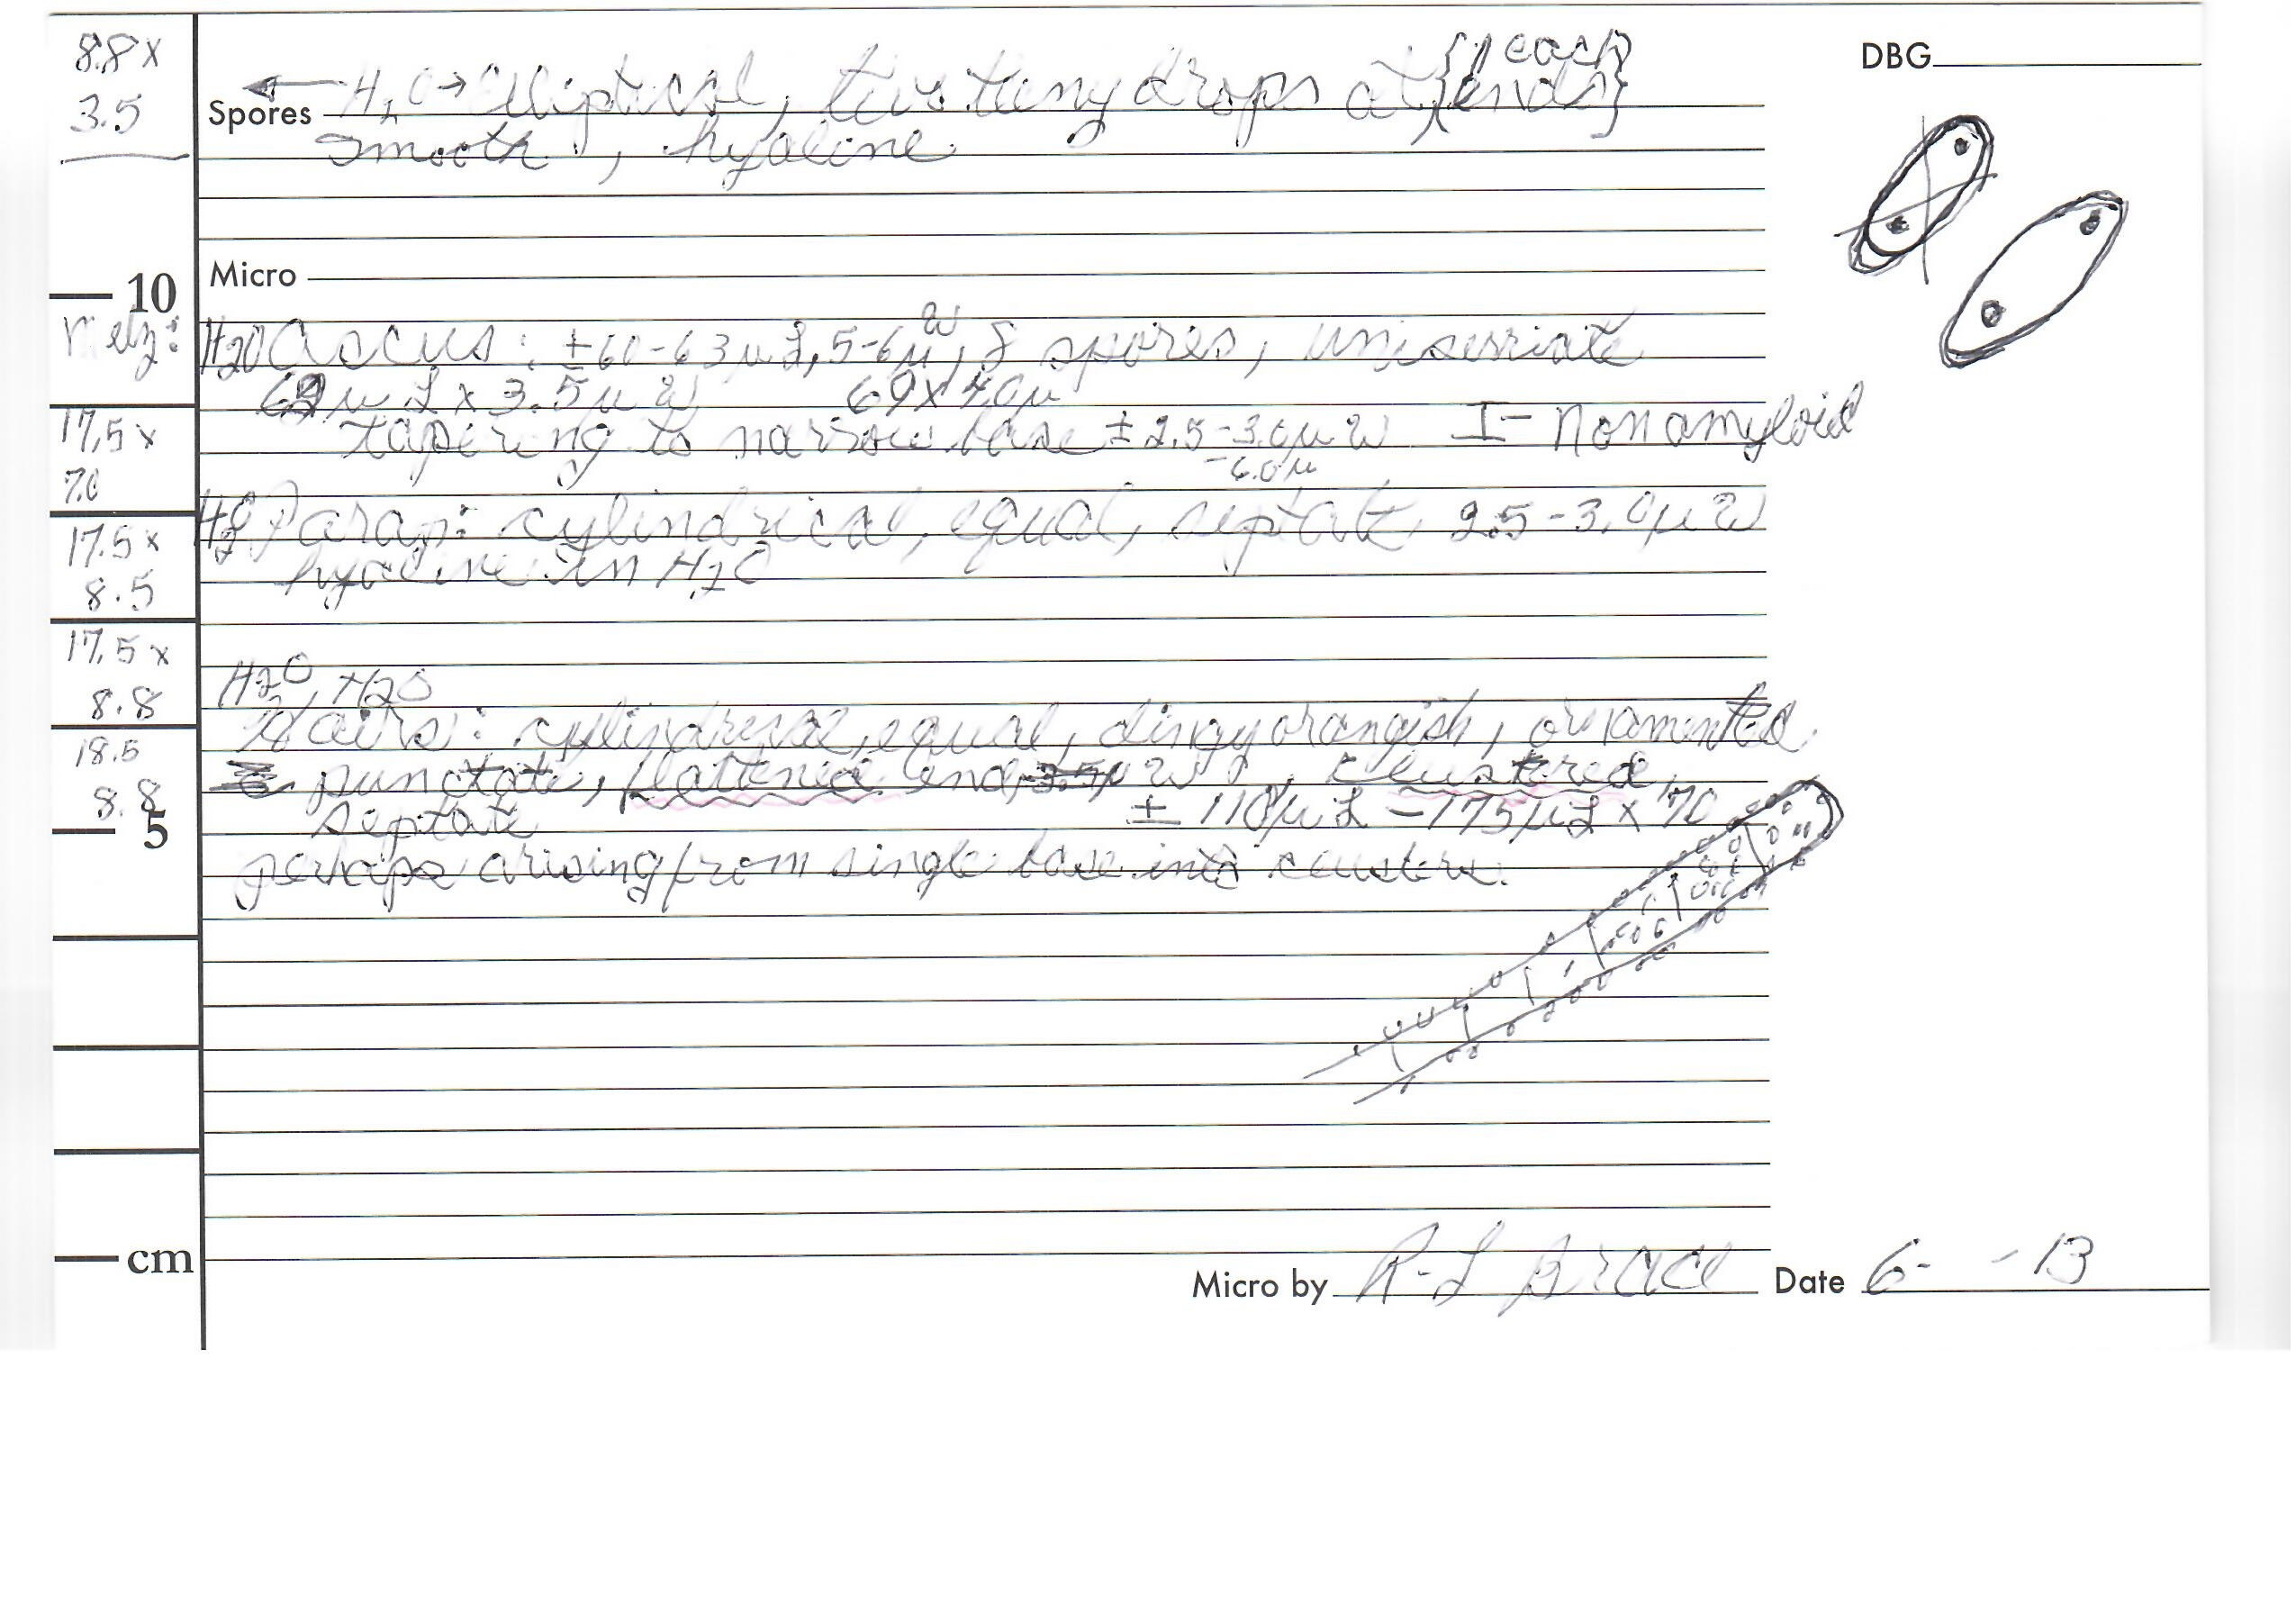 8.8 x
3.5
DBG
Spores ← H2O → elliptical, two teeny drops at {1 each ends}
smooth, hyaline
Micro
10
Melz:
H2O Ascus: ± 60-63 µ L, 5-6 µ W, 8 spores, uniserriate
69 µ L x 3.5 µ W 69 x 4.0 µ
tapering to narrow base ± 2.5-3.0 µ W I- Nonamyloid
-6.0 µ
17.5 x
7.0
H2O Parap: cylindrical, equal, septate, 2.5-3.0 µ W
hyaline in H2O
17.5 x
8.5
17.5 x
8.8
H2O, H2O
Hairs: cylindrical, equal, dingy orangish, ornamented
punctate, flattened end, 3.5 µ W, clustered,
septate ± 110 µ L - 175 µ L x 7.0
perhaps arising from single base into clusters.
18.5
8.8
5
cm
Micro by R-L Brace Date 6- -13